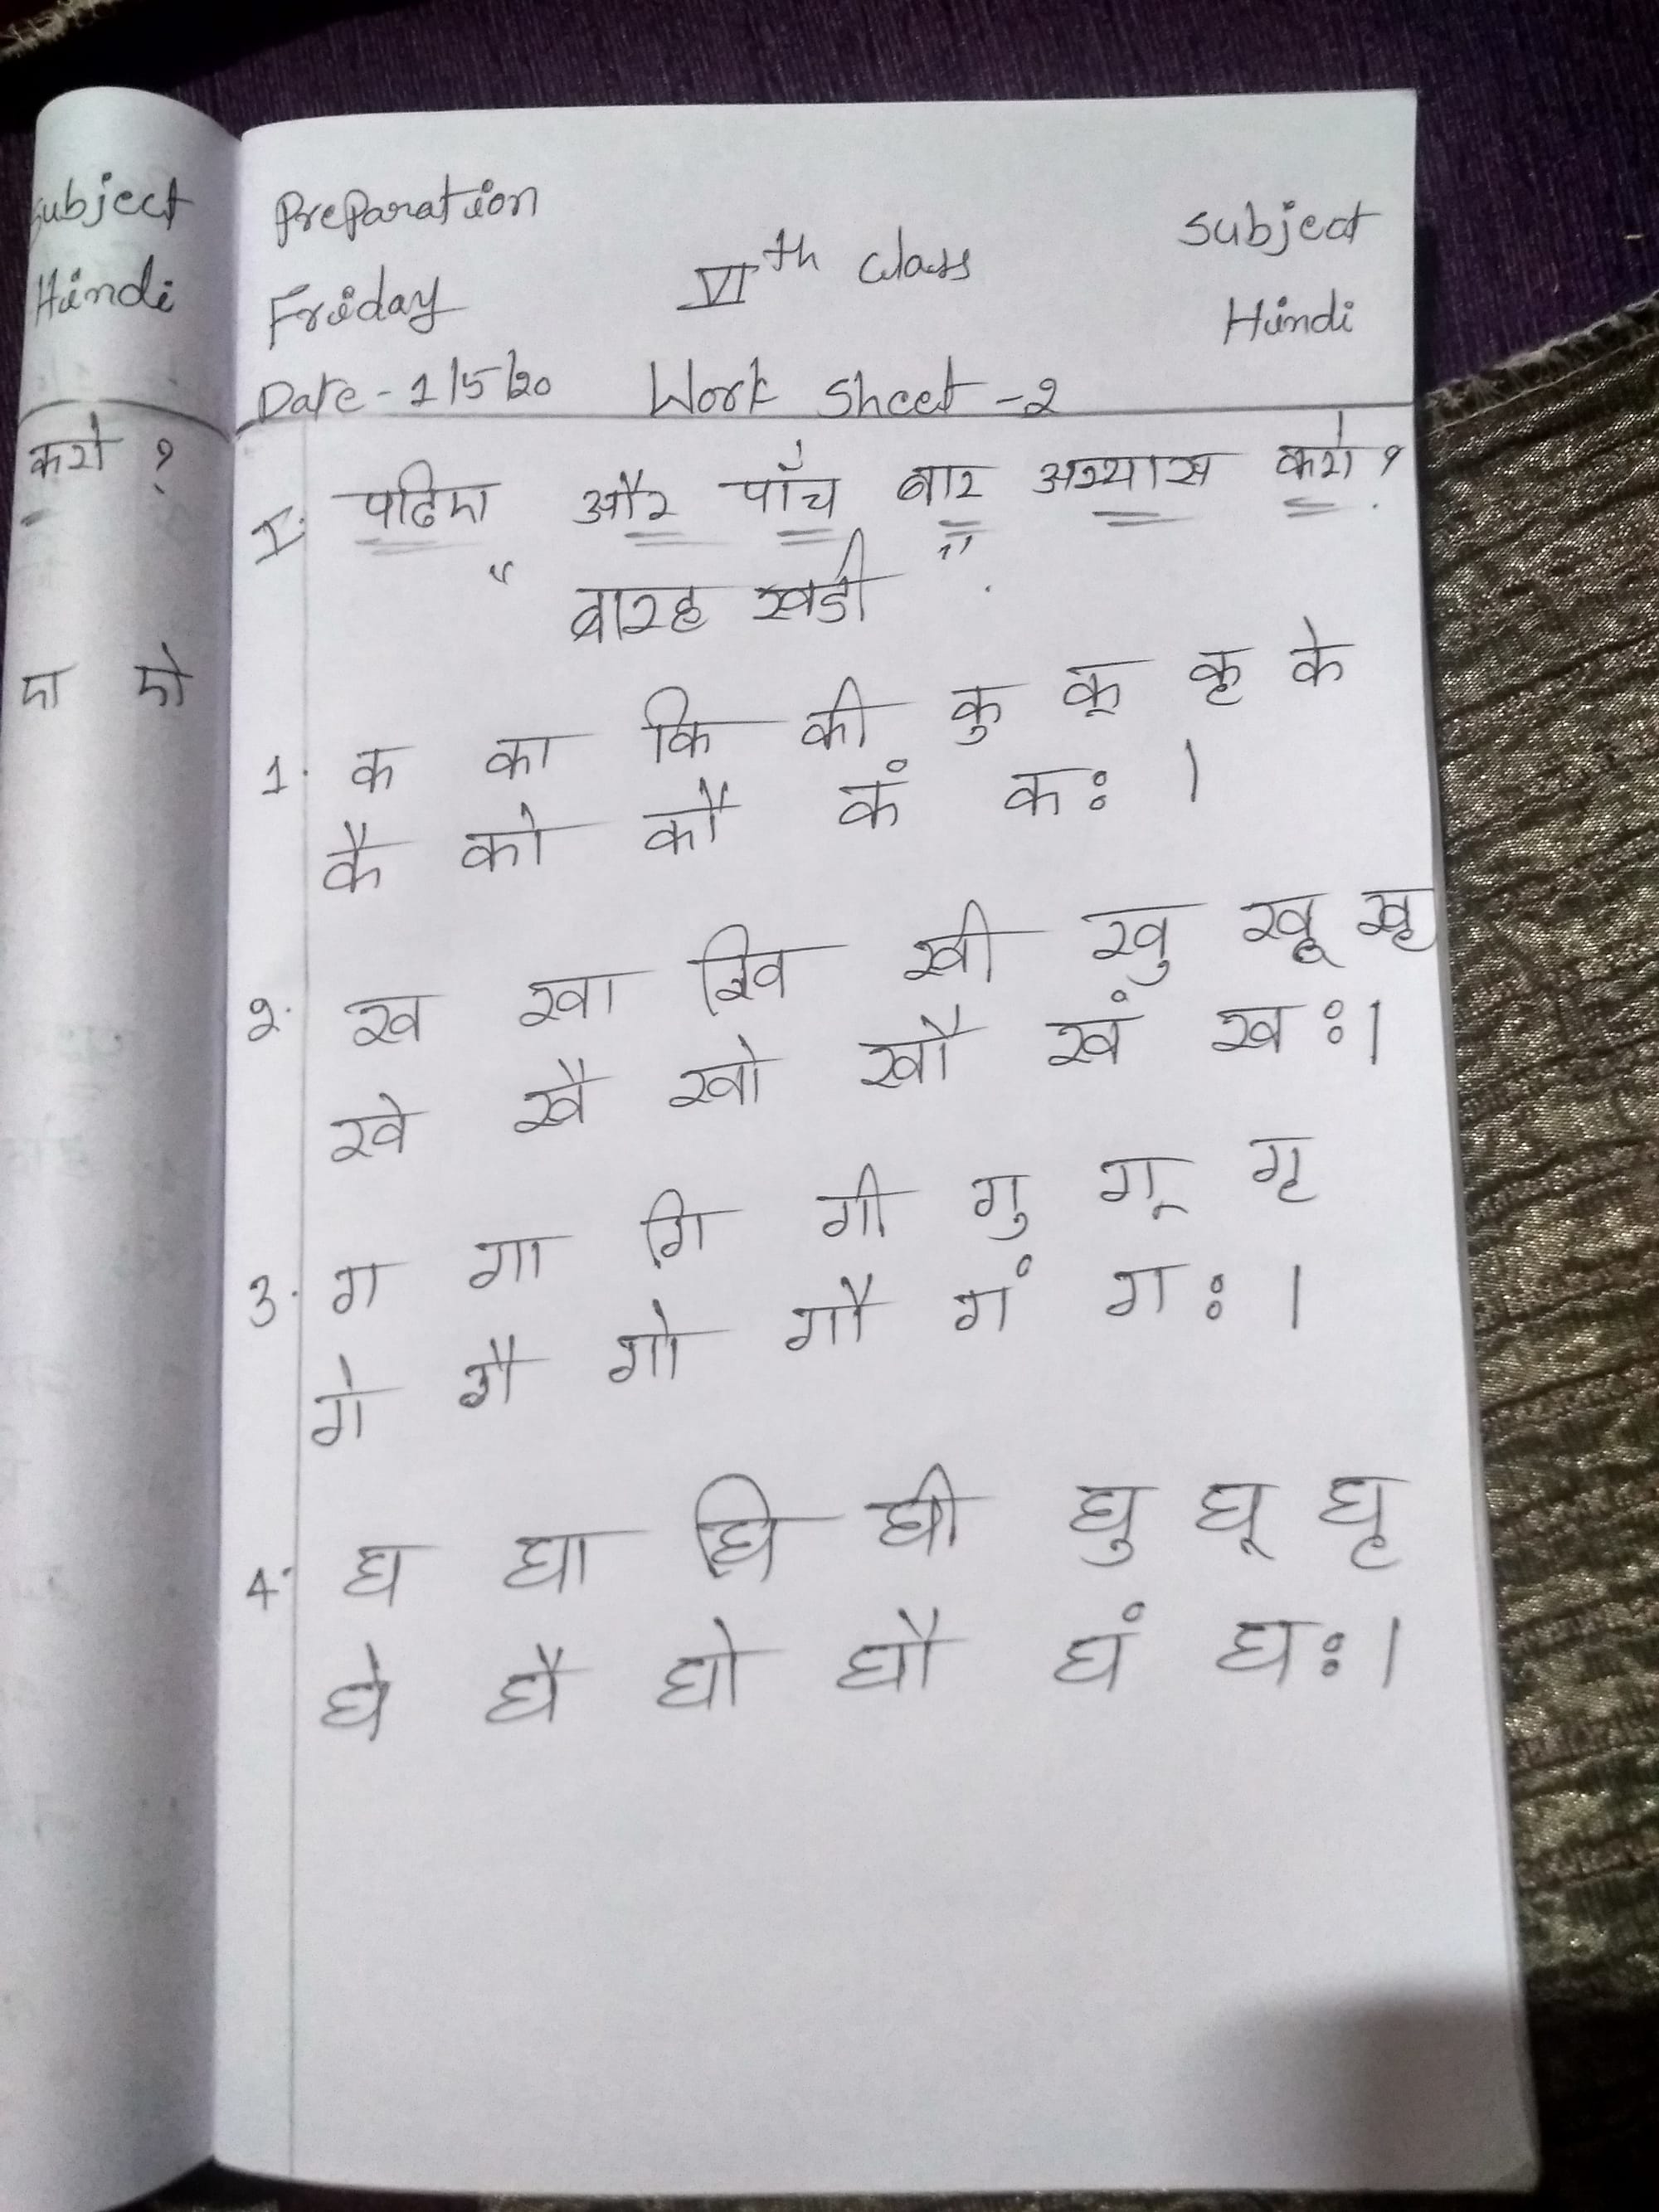 Subject
Hindi
करो ?
ए ऐ
Preparation
Friday VIth Class Subject
Hindi
Date - 1/5/20 Work Sheet - 2
I. पढिए और पाँच बार अभ्यास करो ?
" बारह खडी ".
1. क का कि की कु कू कृ के
कै को कौ कं कः ।
2. ख खा खि खी खु खू खृ
खे खै खो खौ खं खः ।
3. ग गा गि गी गु गू गृ
गे गै गो गौ गं गः ।
4. घ घा घि घी घु घू घृ
घे घै घो घौ घं घः ।